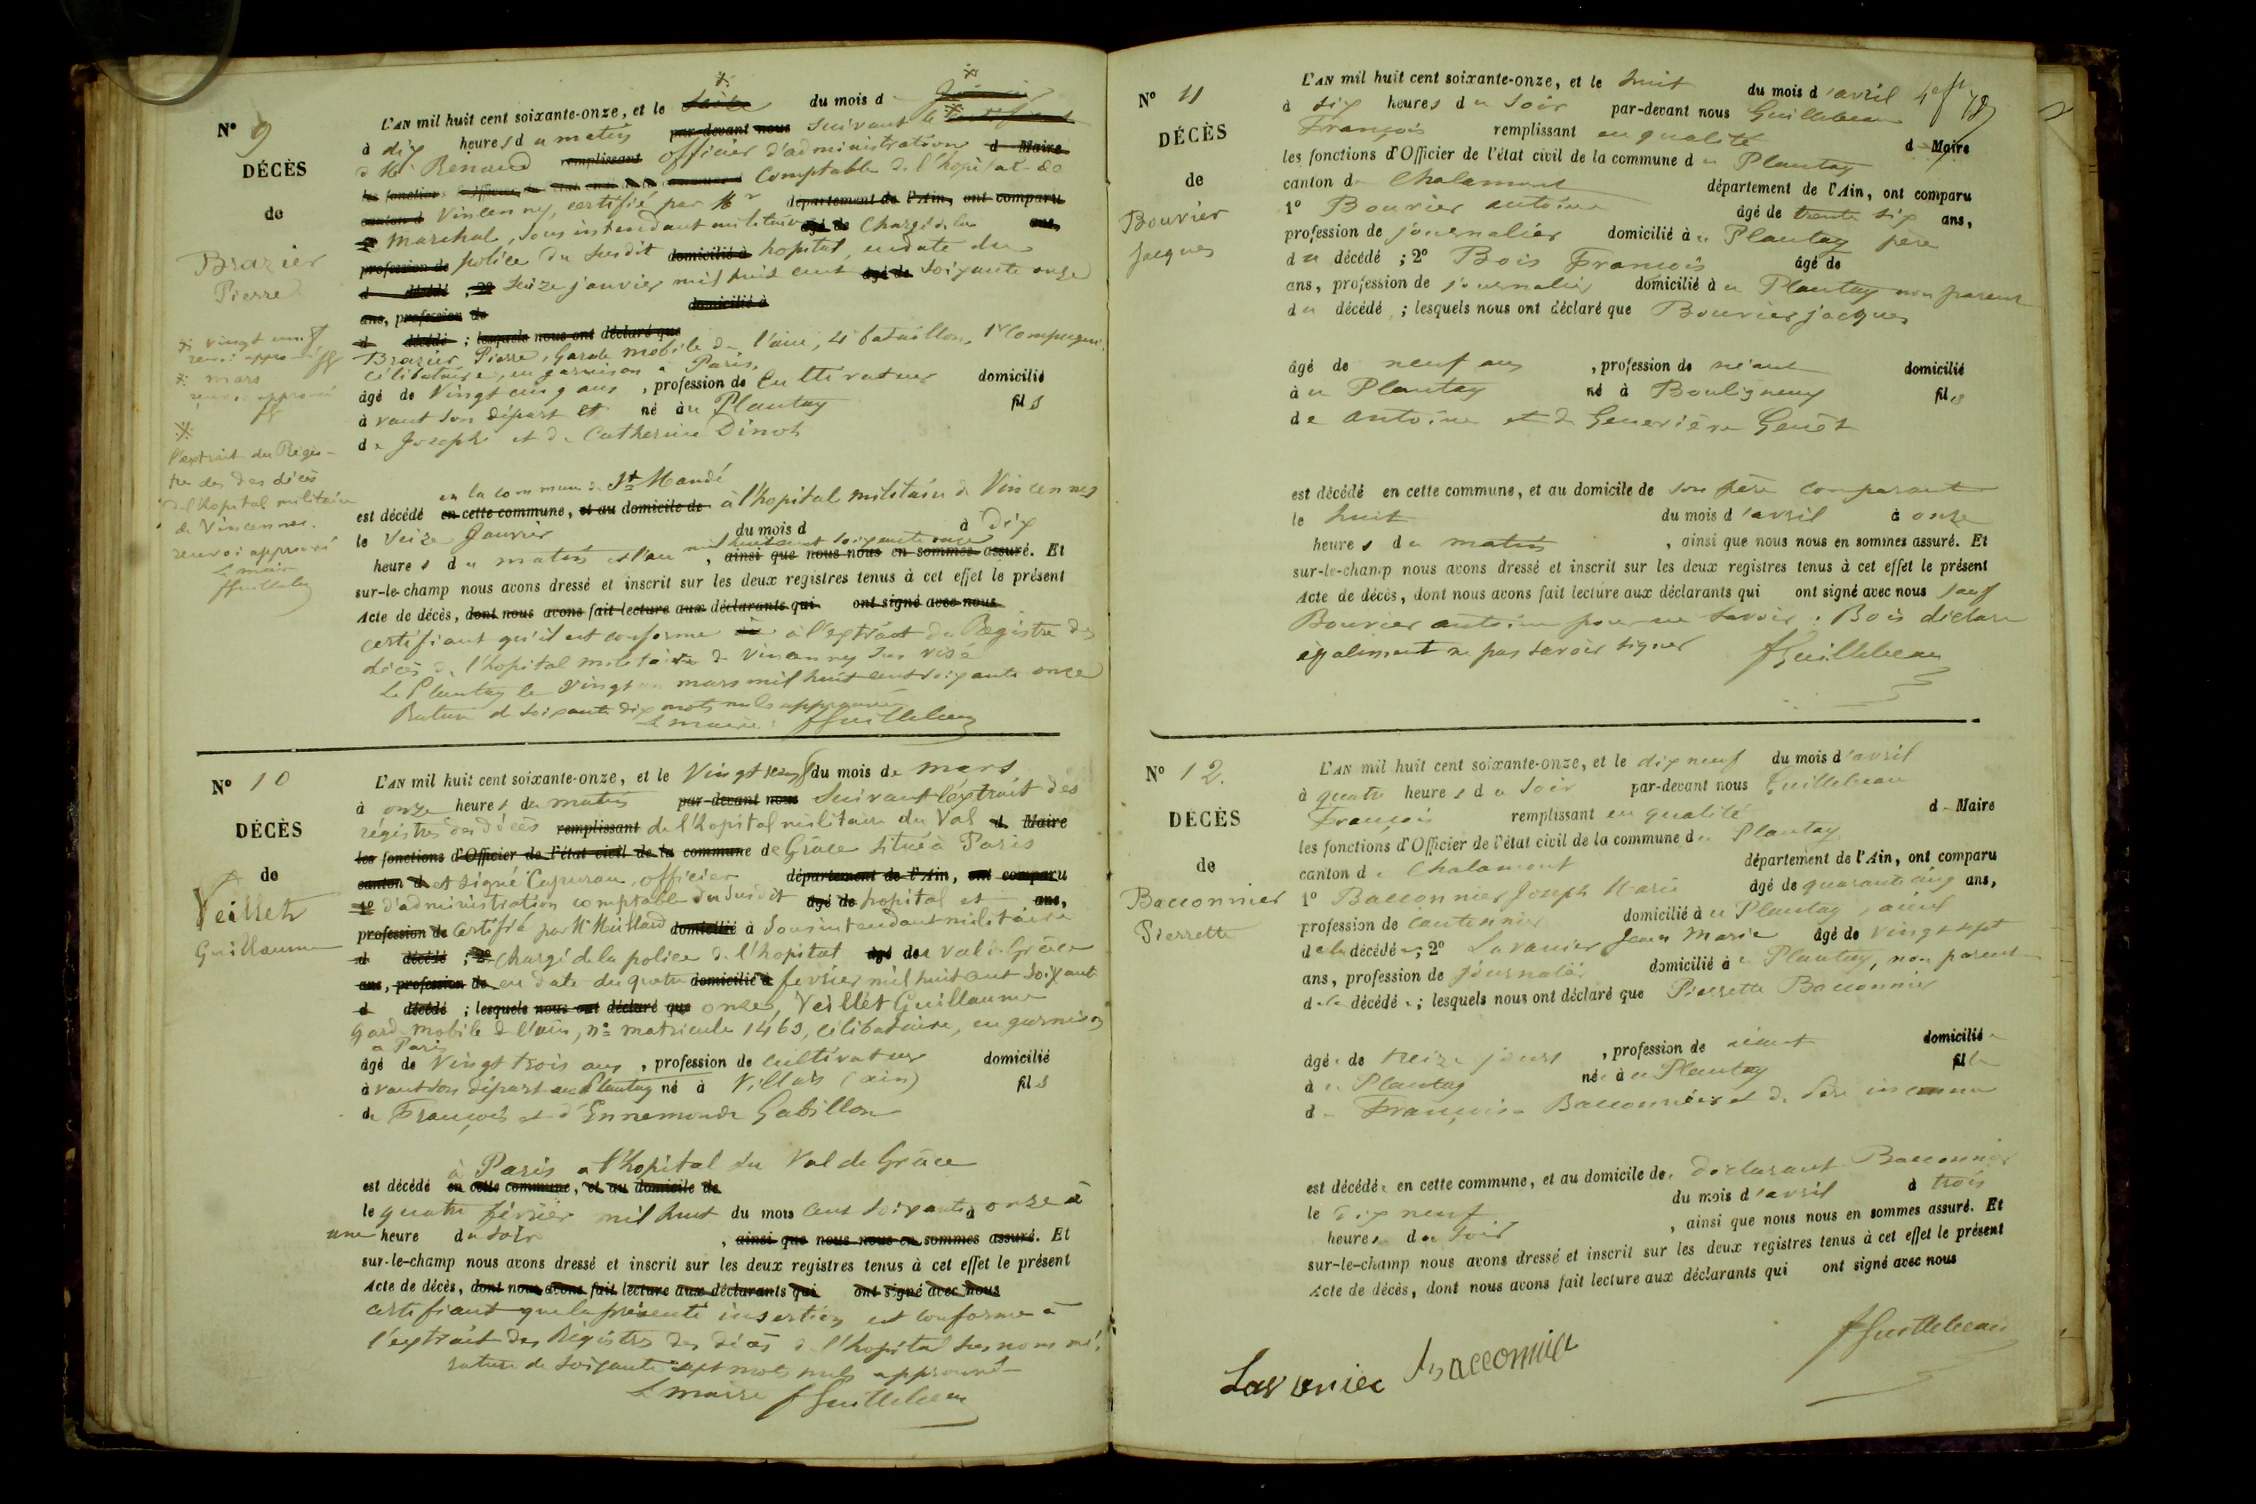 N° 9
DÉCÈS
de
Brazier
Pierre
vingt neuf
renvoi approuvé
mars
renvoi approuvé
l'extrait du Régis-
tre des des décès
de l'hopital militaire
de Vincennes.
renvoi approuvé
Le maire
fGuillebeau
L'AN mil huit cent soixante-onze, et le seize du mois d Janvier
à dix heures du matin par-devant nous suivant le
d Mr Renaud remplissant officier d'administration d Maire
comptable de l'hopital de
canton d Vincennes, certifié par Mr département de l'Ain, ont comparu
1° Marchal, sous intendant militaire âgé de Chargé de la ans,
profession de police du susdit domicilié à hopital, en date du
d décédé ; 2° seize janvier mil huit cent âgé de soixante onze
ans, profession de domicilié à
d décédé ; lesquels nous ont déclaré que
Brazier Pierre, Garde mobile de l'ain, 4e bataillon, 1re Compagnie,
célibataire, en garnison a Paris,
âgé de Vingt cinq ans, profession de Cultivateur domicilié
à vant son départ et né au Plantay fils
de Joseph et de Catherine Dinot
en la commune St Mandé
est décédé en cette commune, et au domicile de à l'hopital militaire de Vincennes
le Seize Janvier du mois d à dix
heures du matin et l'an mil huit cent soixante onze, ainsi que nous nous en sommes assuré. Et
sur-le-champ nous avons dressé et inscrit sur les deux registres tenus à cet effet le présent
Acte de décès, dont nous avons fait lecture aux déclarants qui ont signé avec nous
certifiant qu'il est conforme à l'extrait du Registre des
décès de l'hopital militaire de Vincennes sus visé
Le Plantay le vingt mars mil huit cent soixante onze
Rature de soixante dix mots nuls approuvée
Le maire : fGuillebeau
N° 10
DÉCÈS
de
Veillet
Guillaume
L'AN mil huit cent soixante-onze, et le Vingt neuf du mois de mars
à onze heures du matin par-devant nous Suivant l'extrait des
régistres des décès remplissant de l'hopital militaire du Val d Maire
les fonctions d'Officier de l'état civil de la commune de Grâce situé à Paris
canton d et signé Capuran, officier département de l'Ain, ont comparu
1° d'administration comptable du susdit âgé de hopital et ans,
profession de Certifié par Mr Meillard domicilié à Sous intendant militaire
d décédé ; 2° chargé de la police de l'hopital âgé de du val de Grâce
ans, profession de en date du quatre domicilié à fevrier mil huit cent soixante
d décédé ; lesquels nous ont déclaré que onze, Veillet Guillaume
garde mobile de l'ain, n° matricule 1463, célibataire, en garnison
a Paris
âgé de Vingt trois ans, profession de cultivateur domicilié
à vant son départ au Plantay né à Villars (ain) fils
de François et d'Ennemonde Gabillon
à Paris a l'hopital du Val de Grâce
est décédé en cette commune, et au domicile de
le quatre février mil huit du mois cent soixante à onze à
une heure du soir, ainsi que nous nous en sommes assuré. Et
sur-le-champ nous avons dressé et inscrit sur les deux registres tenus à cet effet le présent
Acte de décès, dont nous avons fait lecture aux déclarants qui ont signé avec nous
certifiant que la présente insertion est conforme à
l'extrait des Régistres des décès de l'hopital sus nommé,
rature de soixante sept mots nuls approuvé
Le maire fGuillebeau
N° 11
DÉCÈS
de
Bouvier
Jacques
L'AN mil huit cent soixante-onze, et le huit du mois d'avril
à six heures du soir par-devant nous Guillebeau
François remplissant en qualité d Maire
les fonctions d'Officier de l'état civil de la commune du Plantay
canton de Chalamont département de l'Ain, ont comparu
1° Bouvier antoine âgé de trente six ans,
profession de journalier domicilié à u Plantay père
du décédé ; 2° Bois François âgé de
ans, profession de journalier domicilié à u Plantay non parent
du décédé ; lesquels nous ont déclaré que Bouvier Jacques
âgé de neuf ans, profession de néant domicilié
à u Plantay né à Bouligneux fils
de antoine et de Geneviève Genêt
est décédé en cette commune, et au domicile de son père comparant
le huit du mois d'avril à onze
heures du matin, ainsi que nous nous en sommes assuré. Et
sur-le-champ nous avons dressé et inscrit sur les deux registres tenus à cet effet le présent
Acte de décès, dont nous avons fait lecture aux déclarants qui ont signé avec nous sauf
Bouvier antoine pour ne savoir. Bois déclare
également ne pas savoir signer fGuillebeau
N° 12.
DÉCÈS
de
Bacconnier
Pierrette
L'AN mil huit cent soixante-onze, et le dix neuf du mois d'avril
à quatre heures du soir par-devant nous Guillebeau
François remplissant en qualité d Maire
les fonctions d'Officier de l'état civil de la commune du Plantay
canton de Chalamont département de l'Ain, ont comparu
1° Bacconnier Joseph Marie âgé de quarante cinq ans,
profession de cantonnier domicilié à u Plantay, aieul
de la décédée ; 2° Lavanier Jean Marie âgé de vingt sept
ans, profession de journalier domicilié à u Plantay, non parent
de la décédée ; lesquels nous ont déclaré que Pierrette Bacconnier
âgée de treize jours, profession de néant domiciliée
à u Plantay née à u Plantay fille
de Françoise Bacconnier et de père inconnu
est décédée en cette commune, et au domicile de déclarant Bacconnier
le dix neuf du mois d'avril à trois
heures du soir, ainsi que nous nous en sommes assuré. Et
sur-le-champ nous avons dressé et inscrit sur les deux registres tenus à cet effet le présent
Acte de décès, dont nous avons fait lecture aux déclarants qui ont signé avec nous
fGuillebeau
Lavenier Bacconnier